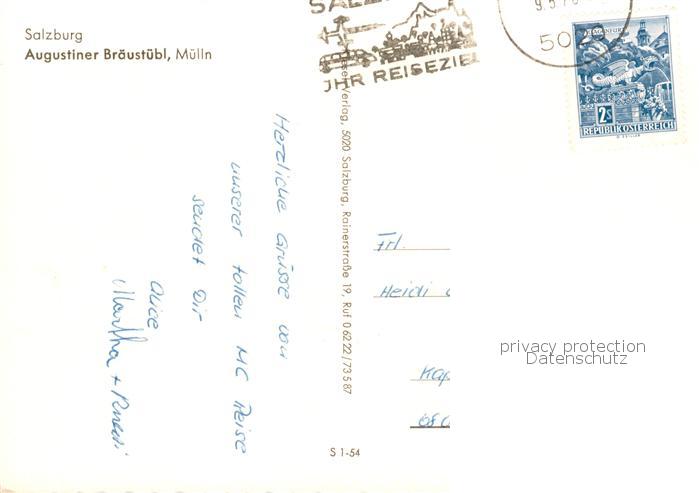 Salzburg
Augustiner Bräustübl, Mülln
JHR REISEZIEL
KLAGENFURT
2S
REPUBLIK ÖSTERREICH
Verlag, 5020 Salzburg, Rainerstraße 19, Ruf 0 62 22 / 7 35 87
Herzliche Grüsse von
unserer tollen MC Reise
sendet Dir
Alice
Martha +
Frl.
Heidi
privacy protection
Datenschutz
S 1-54